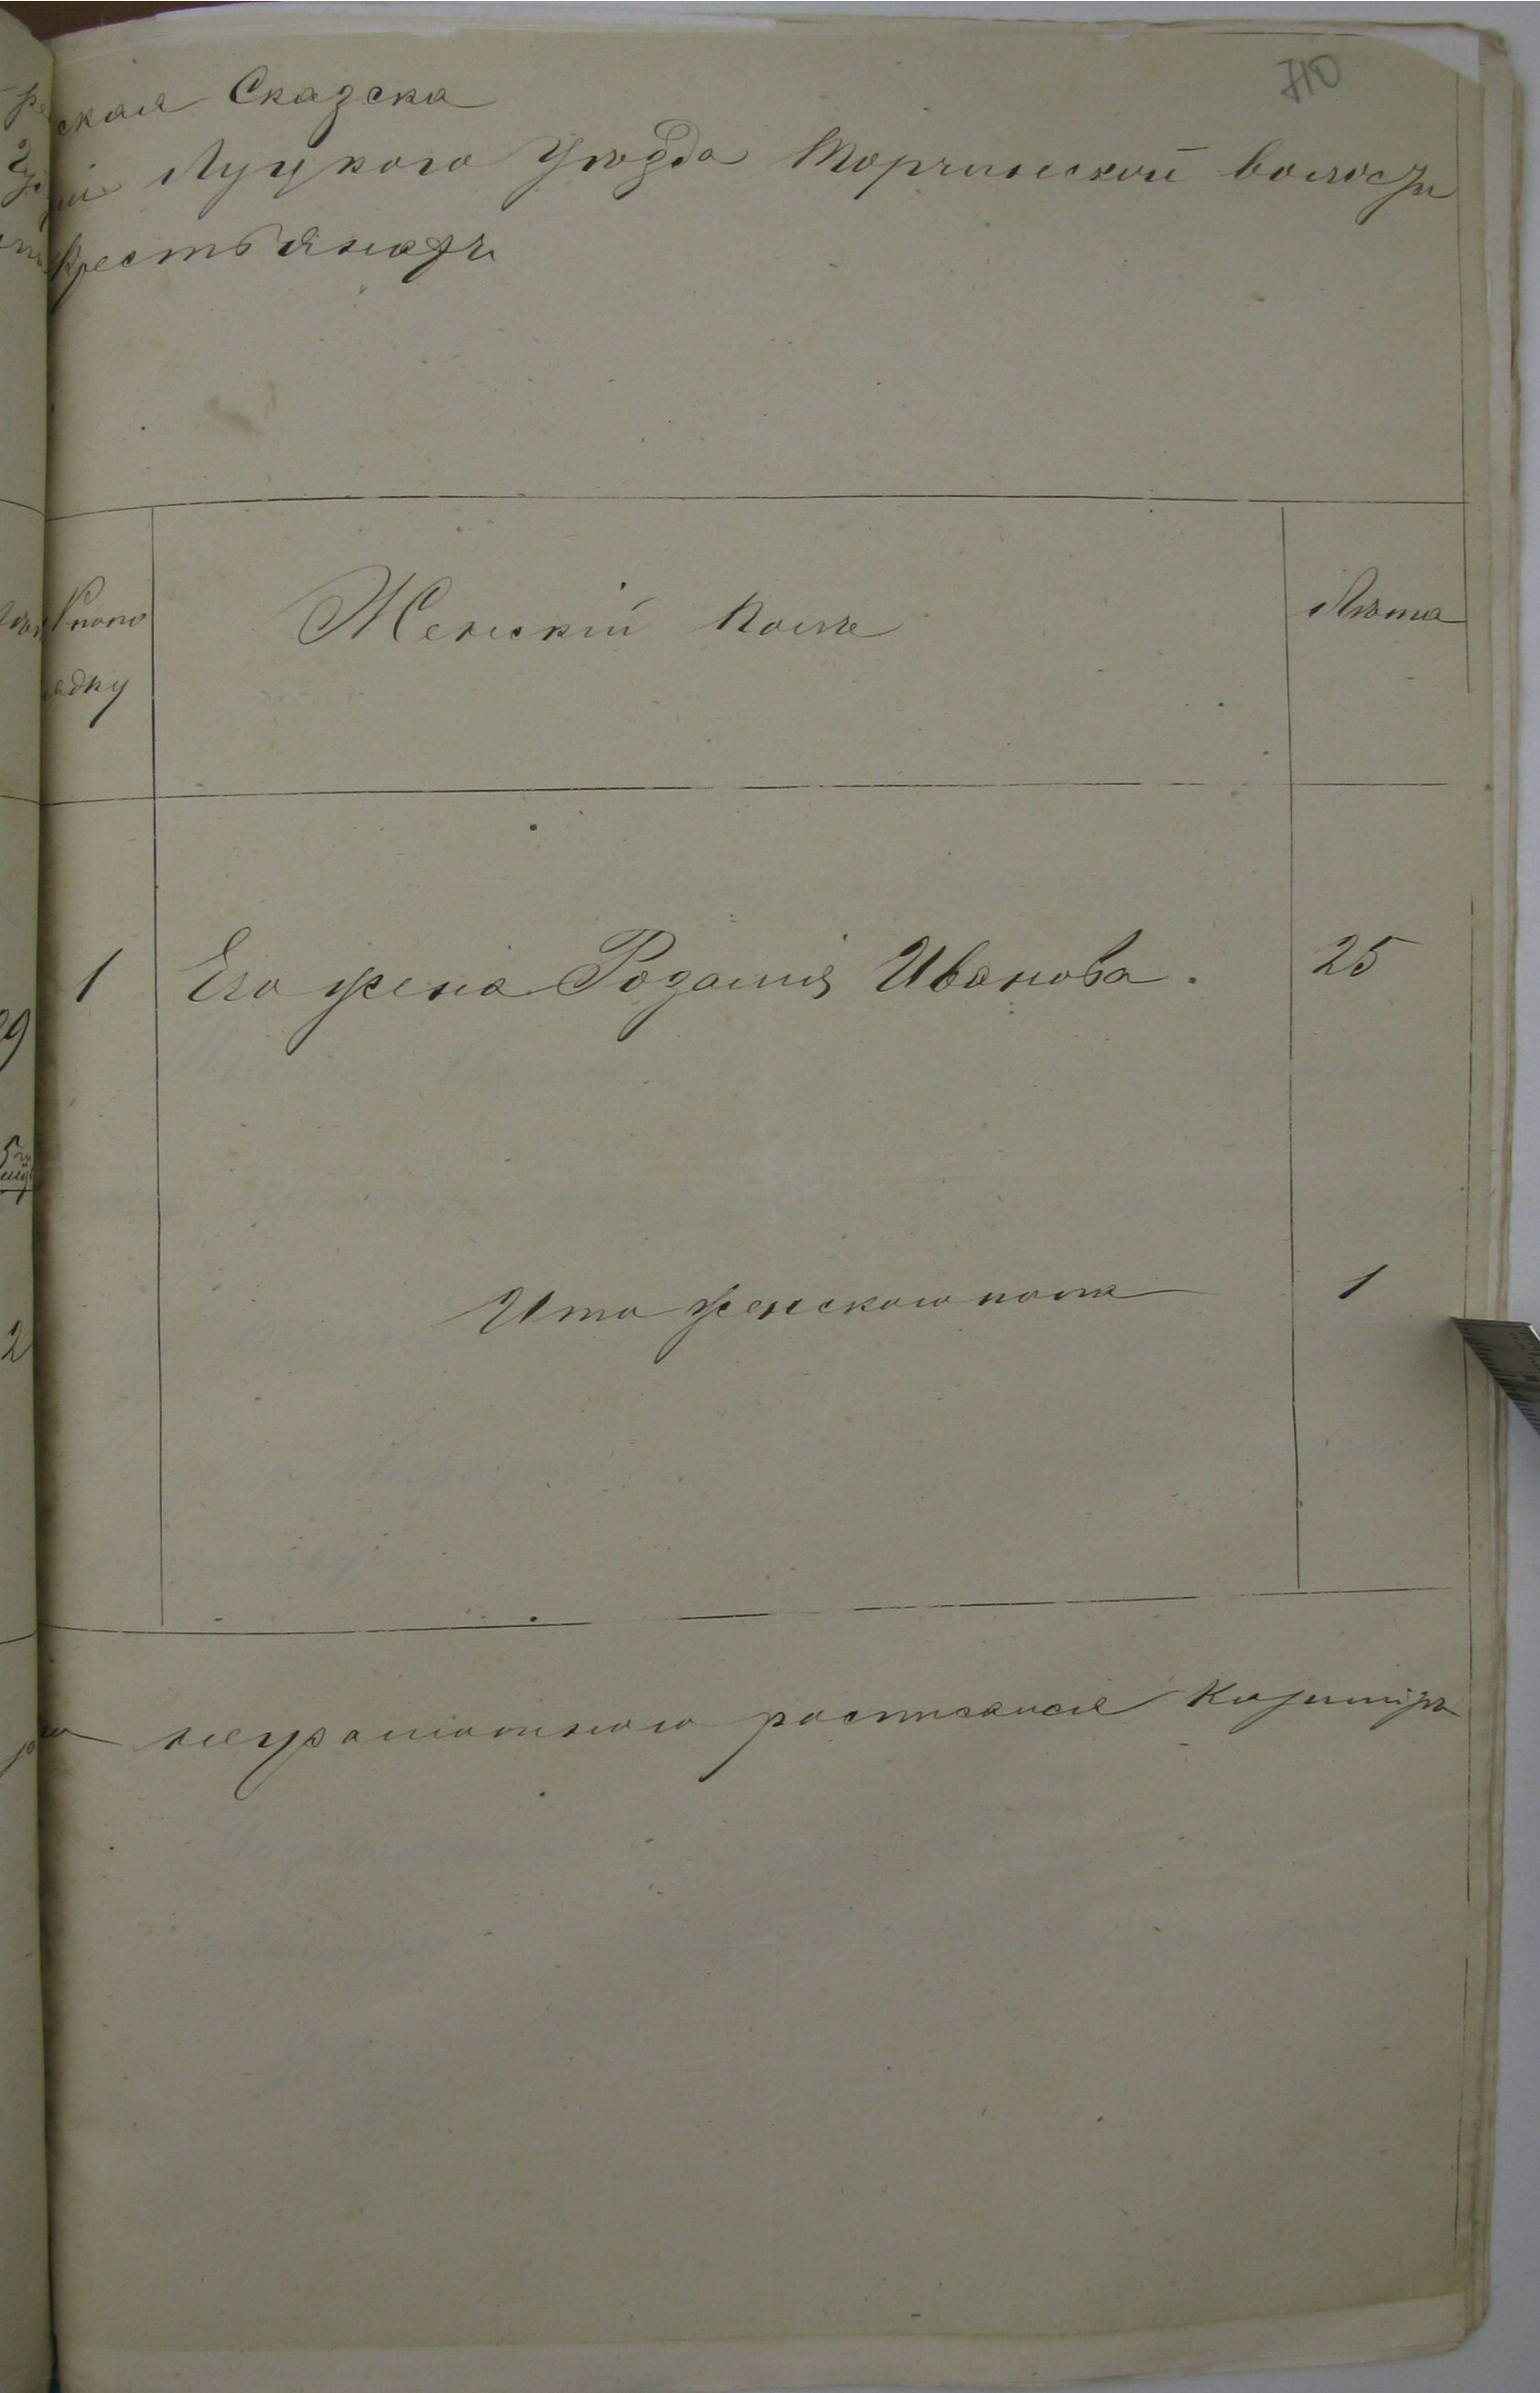 710
ская Сказска
Луцкого Уѣзда Торчинской волости
Крестьянахъ
По по
рядку
Женскій полъ
Лѣта
1 Его жена Розалія Иванова. 25
Итого женского пола 1
неграмотного росписался Казимiръ